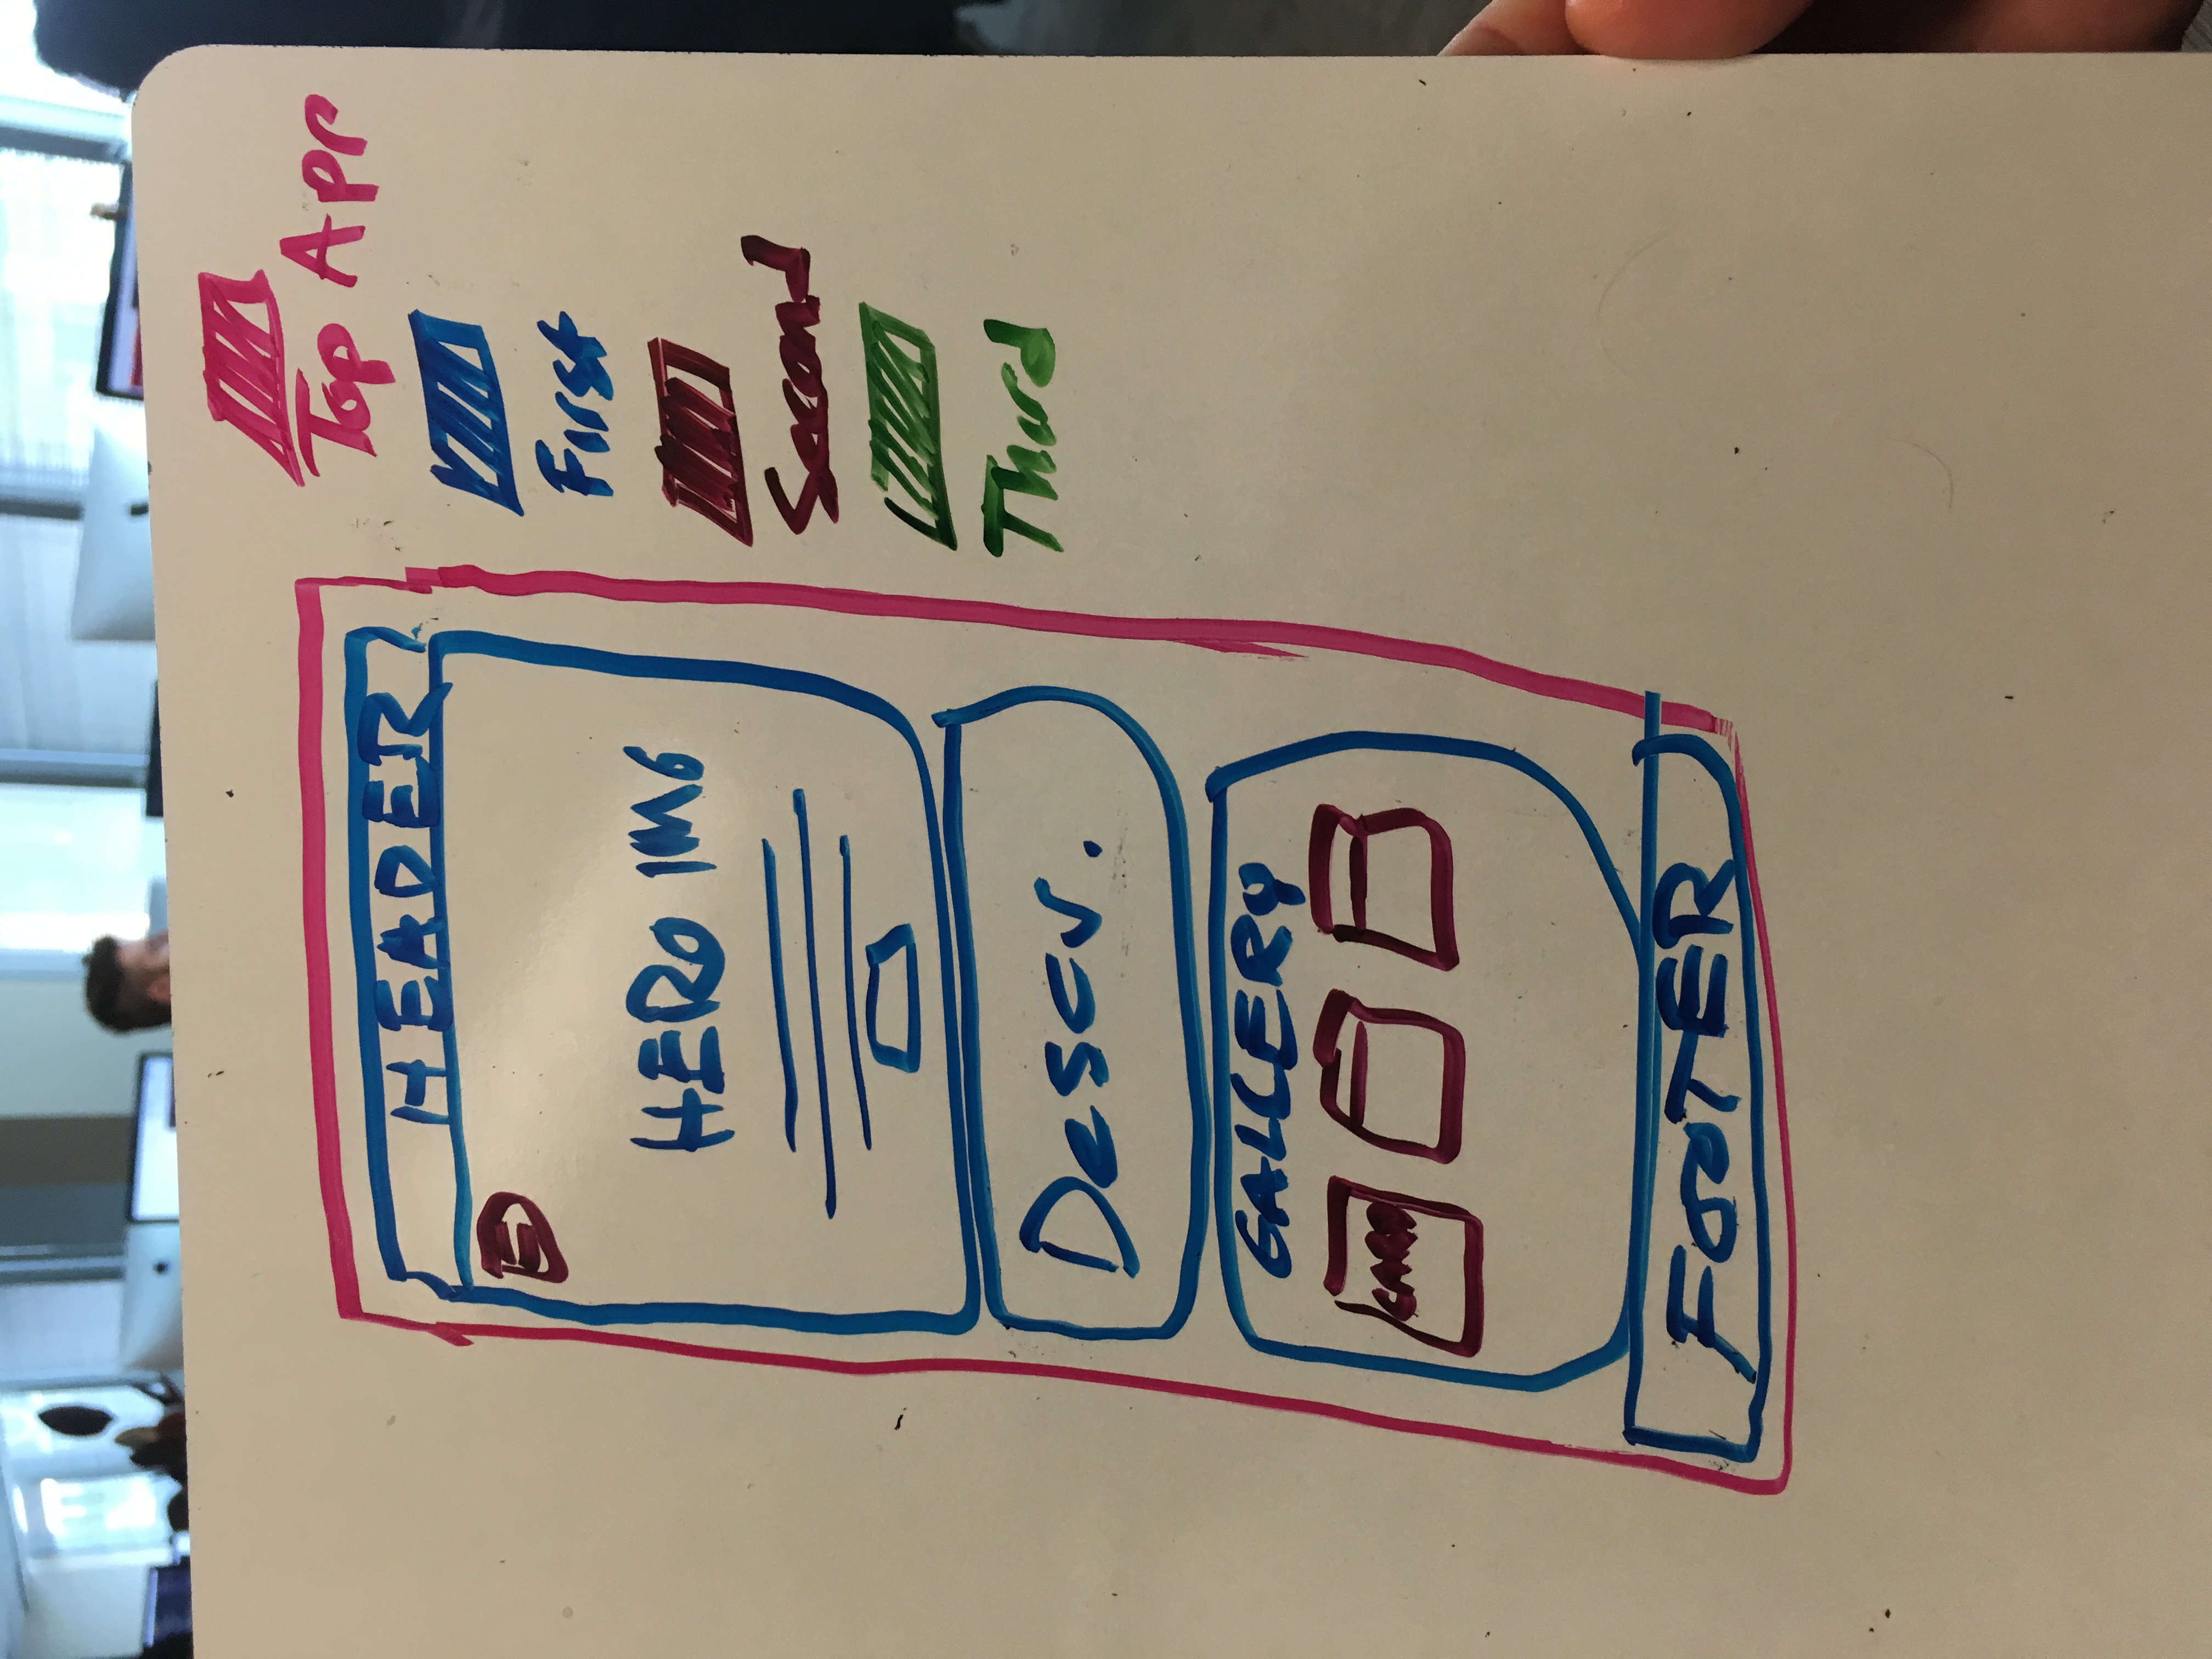 HEADER
HERO IMG
Descr.
GALLERY
CARD
FOOTER
Top App
First
Second
Third